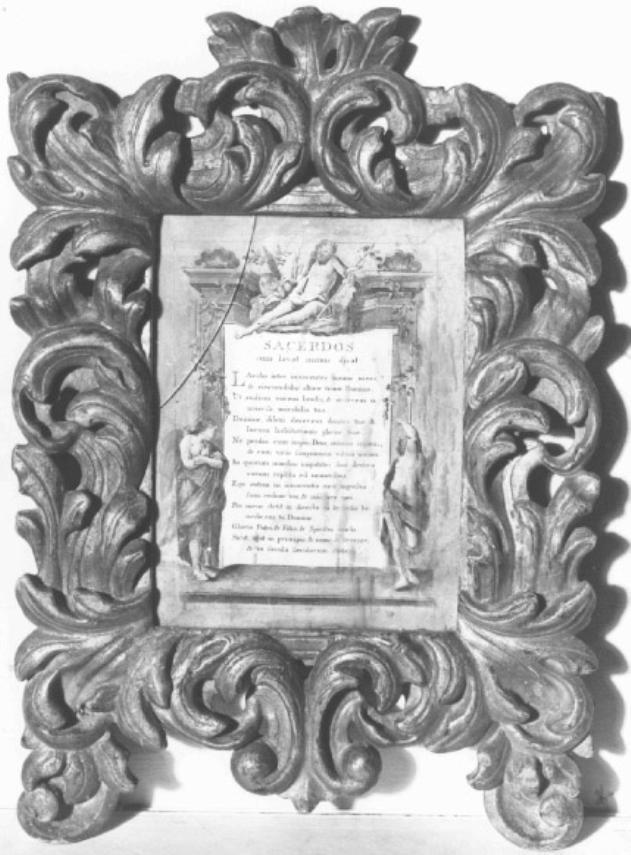 SACERDOS
cum lavat manus dicat
Lavabo inter innocentes manus meas,
& circumdabo altare tuum Domine.
Ut audiam vocem laudis, & enarrem u
niversa mirabilia tua.
Domine, dilexi decorem domus tuæ &
locum habitationis gloriæ tuæ.
Ne perdas cum impiis Deus animam meam,
& cum viris sanguinum vitam meam.
In quorum manibus iniquitates sunt dextera
eorum repleta est muneribus.
Ego autem in innocentia mea ingressus
sum redime me & miserere mei.
Pes meus stetit in directo in ecclesiis be
nedicam te Domine.
Gloria Patri, & Filio, & Spiritui Sancto.
Sicut erat in principio & nunc & semper,
& in sæcula sæculorum